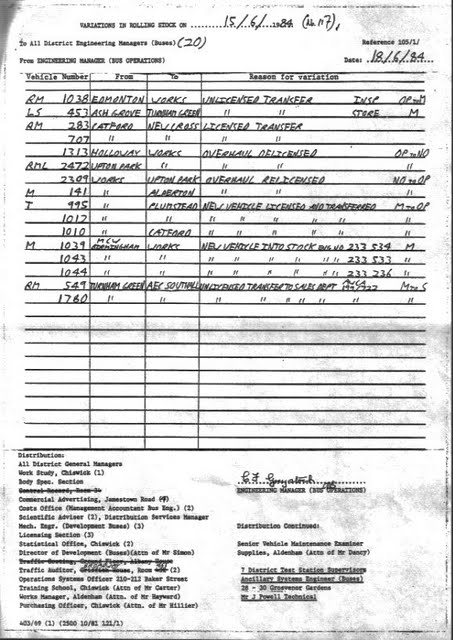 VARIATIONS IN ROLLING STOCK ON 15/6/1984 (No 117),
To All District Engineering Managers (Buses) (20) Reference 105/1/
From ENGINEERING MANAGER (BUS OPERATIONS) Date: 18/6/84
Vehicle Number From To Reason for variation
RM 1038 EDMONTON WORKS UNLICENSED TRANSFER INSP OP to M
LS 453 ASH GROVE TURNHAM GREEN " " STORE M
RM 283 CATFORD NEW CROSS LICENSED TRANSFER
707 " " " "
1313 HOLLOWAY WORKS OVERHAUL DELICENSED OP to NO
RML 2472 UPTON PARK " " " "
2309 WORKS UPTON PARK OVERHAUL RELICENSED NO to OP
M 141 " ALPERTON " " "
T 995 " PLUMSTEAD NEW VEHICLE LICENSED AND TRANSFERRED M to OP
1012 " " " " " " " "
1010 " CATFORD " " " " " "
M 1039 MCW BIRMINGHAM WORKS NEW VEHICLE INTO STOCK ENG NO 233 534 M
1043 " " " " " " " " 233 533 "
1044 " " " " " " " " 233 236 "
RM 549 TURNHAM GREEN AEC SOUTHALL UNLICENSED TRANSFER TO SALES DEPT M to S
1780 " " " " " " " "
Distribution:
All District General Managers
Work Study, Chiswick (1)
Body Spec. Section
General Record, Room 34
Commercial Advertising, Jamestown Road (4)
Costs Office (Management Accountant Bus Eng.) (2)
Scientific Adviser (2), Distribution Services Manager
Mech. Engr. (Development Buses) (3)
Licensing Section (3)
Statistical Office, Chiswick (2)
Director of Development (Buses)(Attn of Mr Simon)
Traffic Costing, Ground Floor, Albany House
Traffic Auditor, Griffith House, Room (2)
Operations Systems Officer 210-212 Baker Street
Training School, Chiswick (Attn of Mr Carter)
Works Manager, Aldenham (Attn. of Mr Hayward)
Purchasing Officer, Chiswick (Attn of Mr Hillier)
ENGINEERING MANAGER (BUS OPERATIONS)
Distribution Continued:
Senior Vehicle Maintenance Examiner
Supplies, Aldenham (Attn of Mr Dancy)
7 District Test Station Supervisors
Ancillary Systems Engineer (Buses)
28 - 30 Grosvenor Gardens
Mr J Powell Technical
403/69 (1) (2500 10/81 121/1)